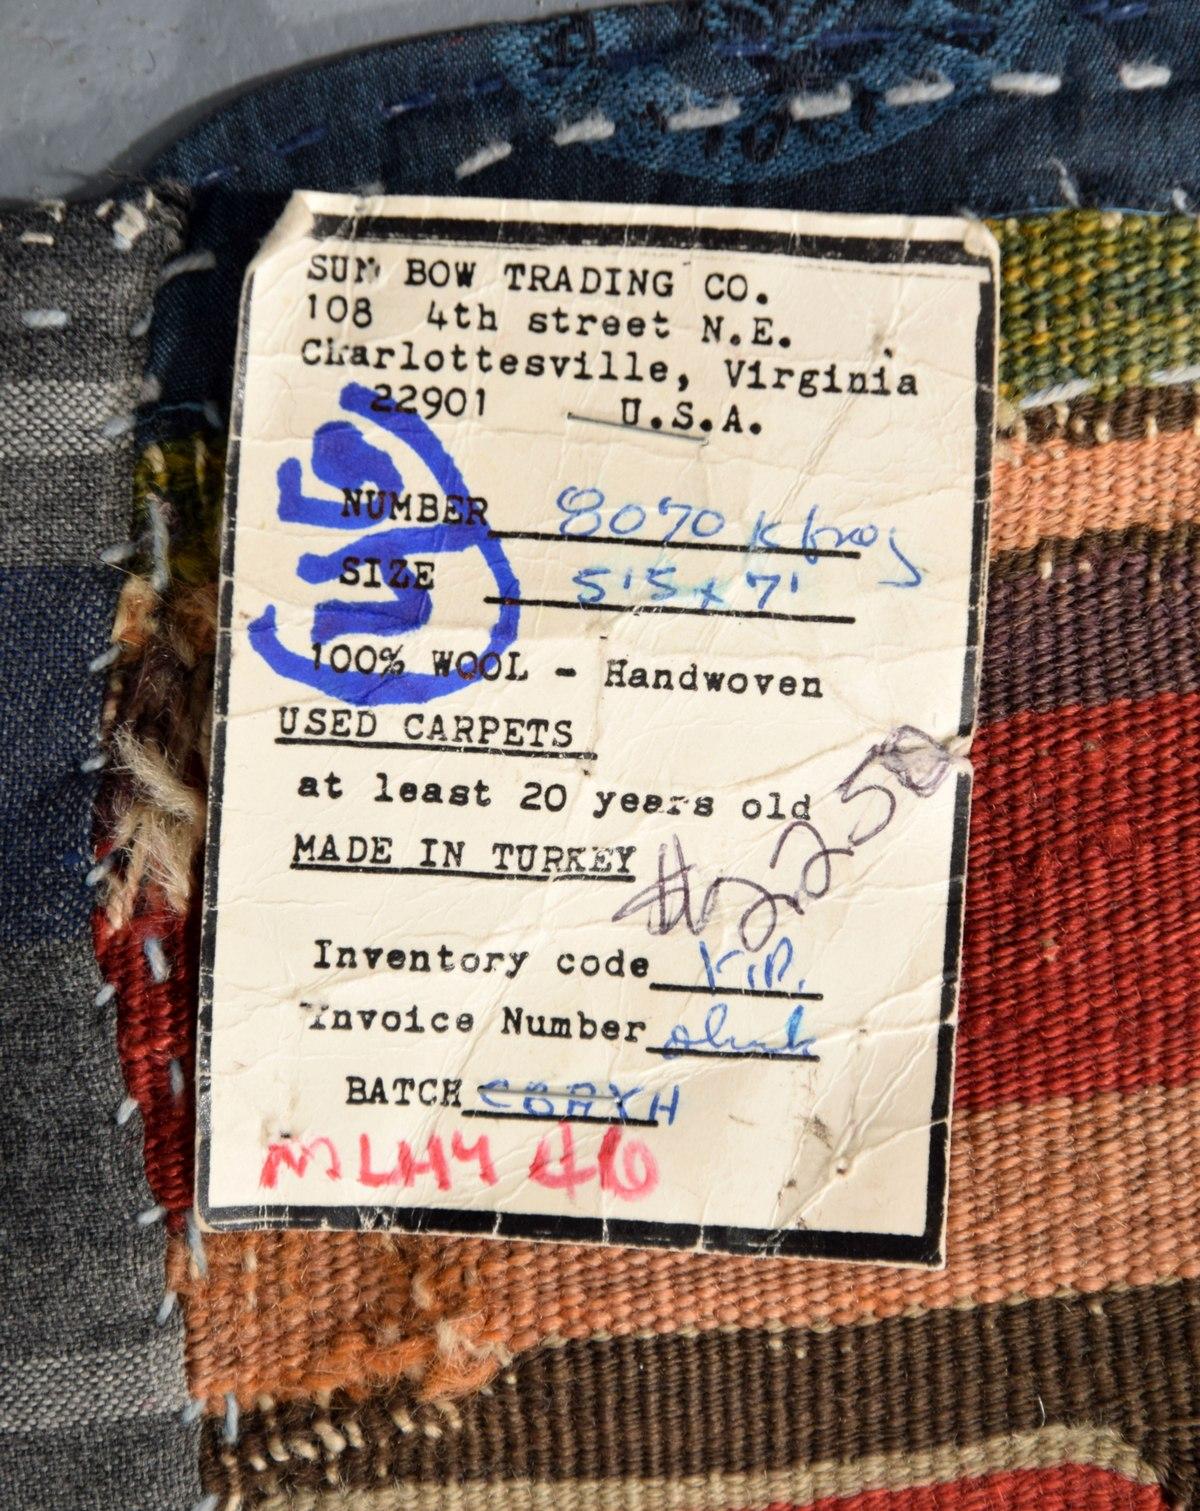 SUN BOW TRADING CO.
108 4th street N.E.
Charlottesville, Virginia
22901 U.S.A.
NUMBER 8070
SIZE 5'5 x 7'
100% WOOL - Handwoven
USED CARPETS
at least 20 years old
MADE IN TURKEY
Inventory code
Invoice Number
BATCH CBAXH
MLHY 46